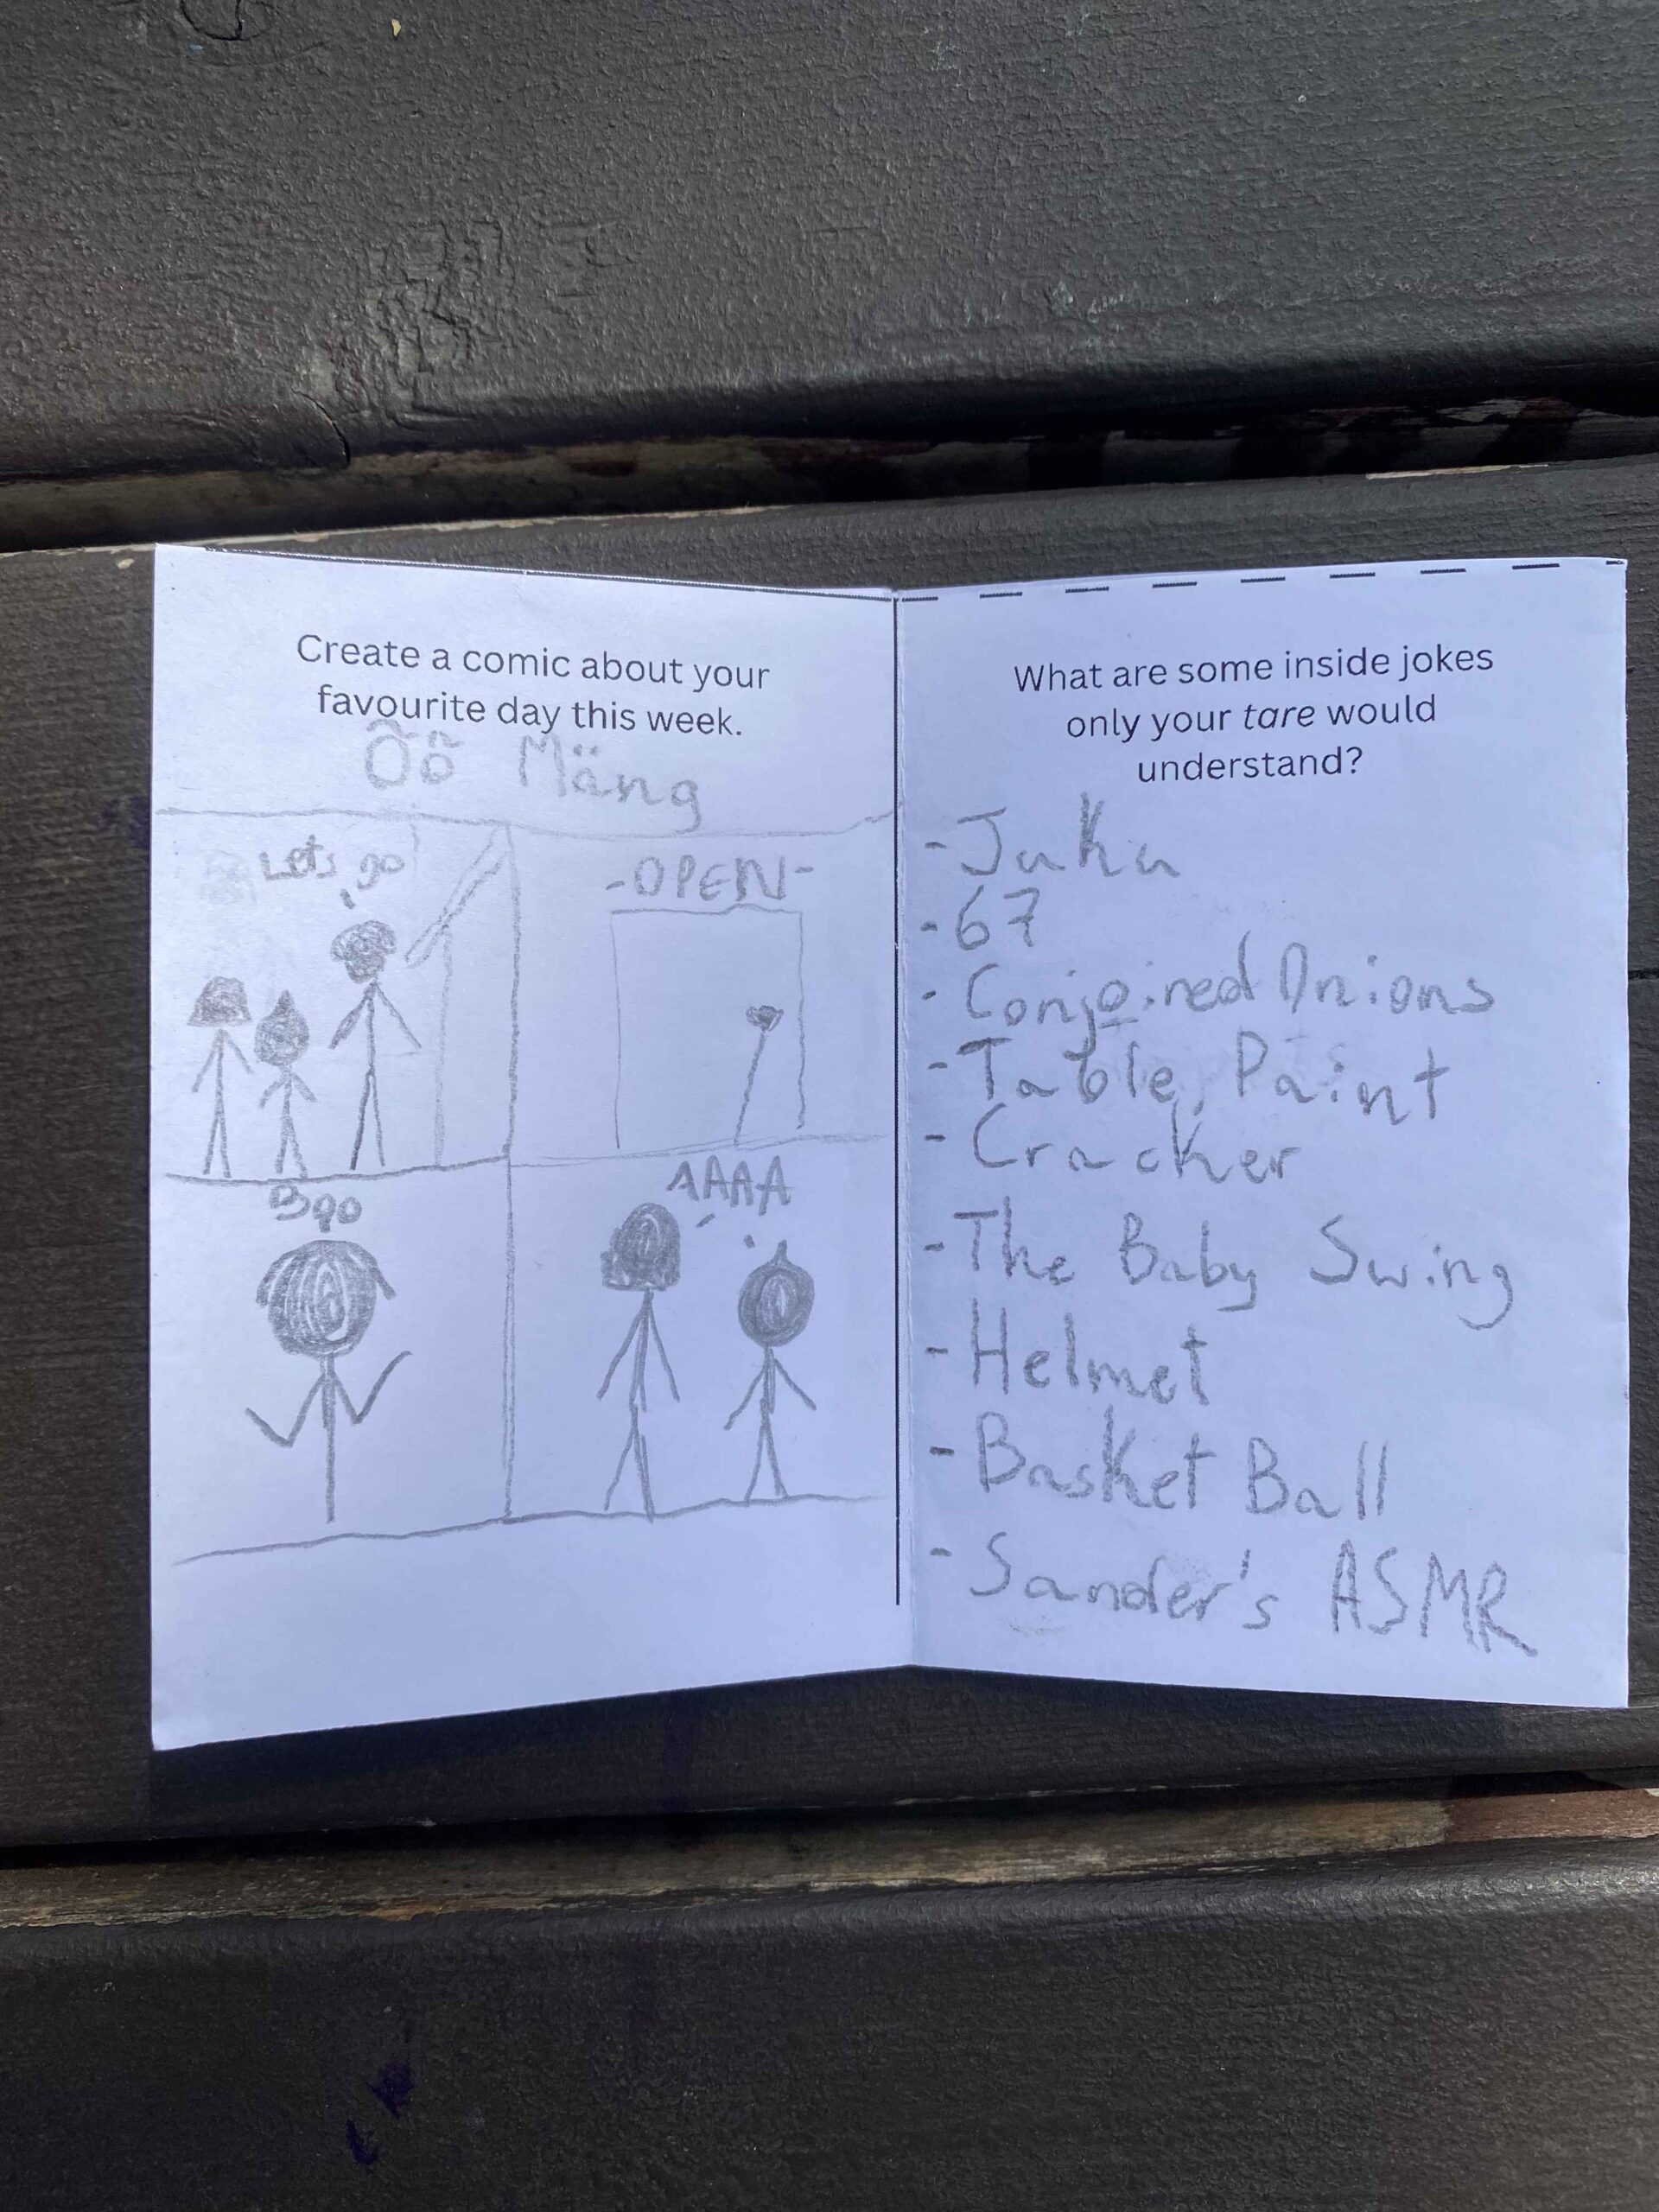 Create a comic about your
favourite day this week.
Öö Mäng
Lets go
-OPEN-
AAAA
What are some inside jokes
only your tare would
understand?
- Juku
- 67
- Conjoined Onions
- Table, Paint
- Cracker
- The Baby Swing
- Helmet
- Basket Ball
- Sander's ASMR